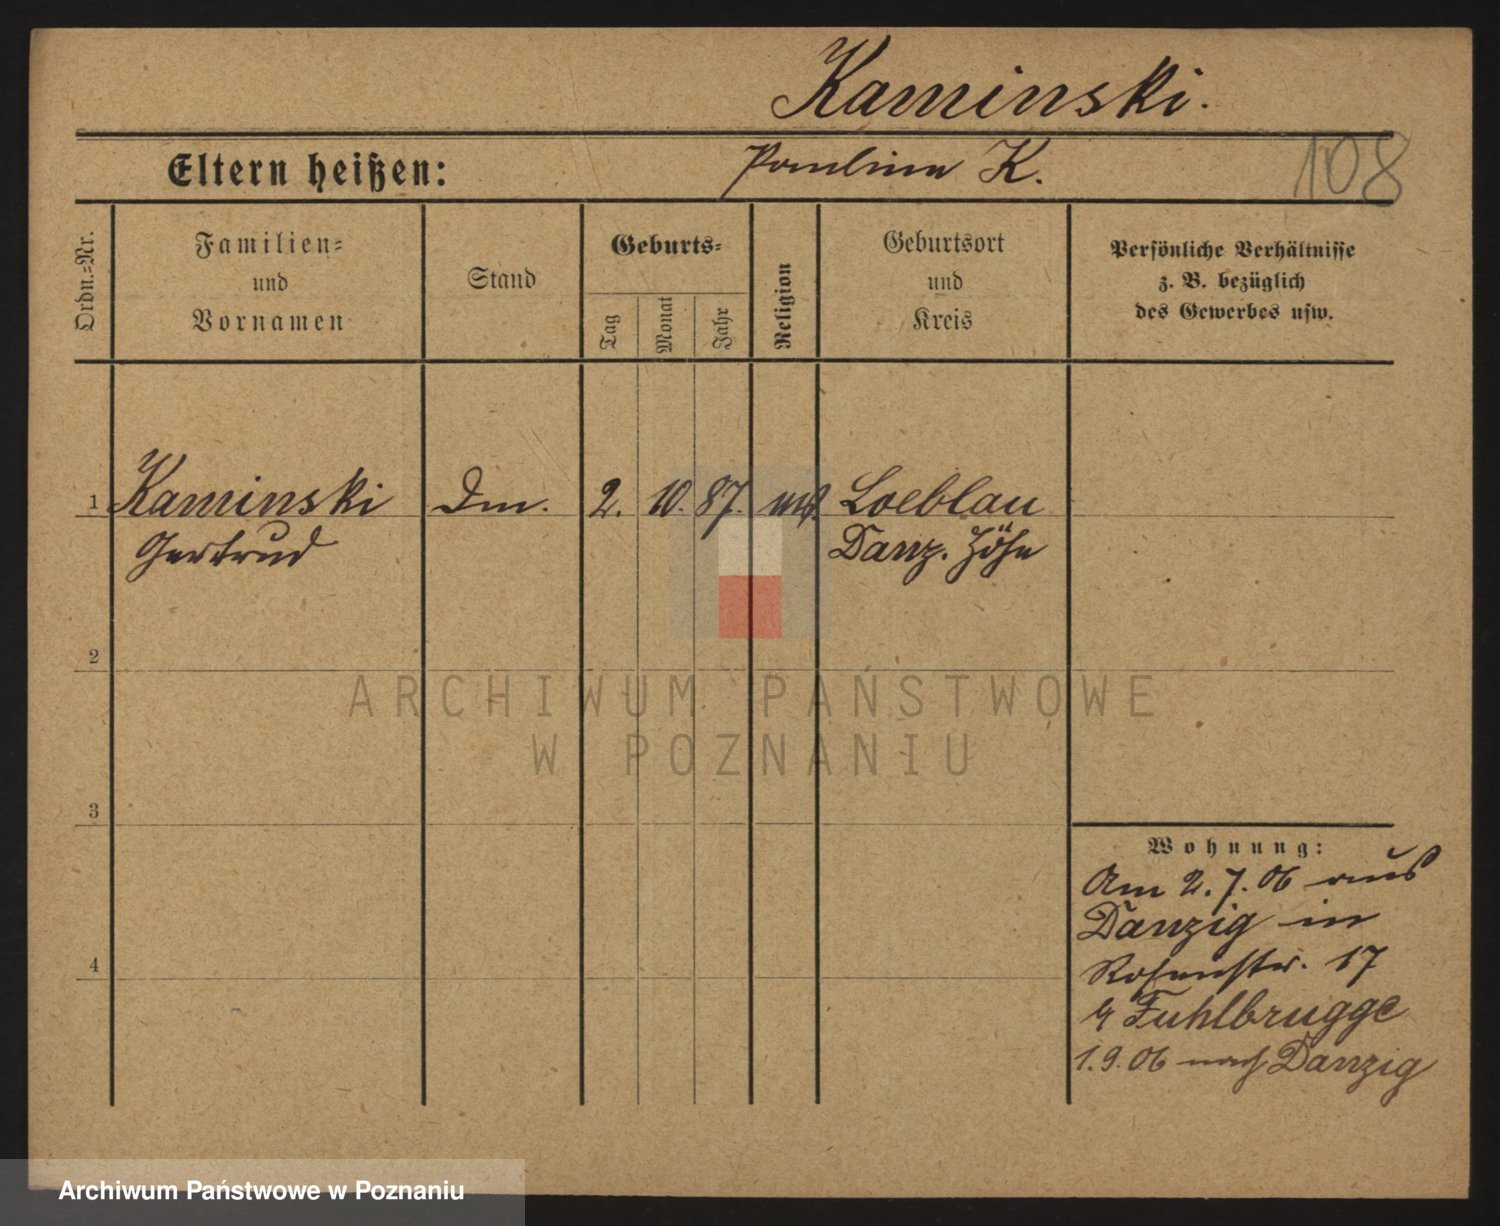 Kaminski.
Eltern heißen: Paulina K. 108
Ordn.-Nr.
Familien-
und
Vornamen
Stand
Geburts-
Tag
Monat
Jahr
Religion
Geburtsort
und
Kreis
Persönliche Verhältnisse
z. B. bezüglich
des Gewerbes usw.
1 Kaminski Dm. 2. 10. 87. Loeblau
Gertrud Danz. Höhe
2
3
4
Wohnung:
Am 2.7.06 aus
Danzig in
Rosenstr. 17
b/ Fuhlbrugge
1.9.06 nach Danzig
ARCHIWUM PAŃSTWOWE
W POZNANIU
Archiwum Państwowe w Poznaniu